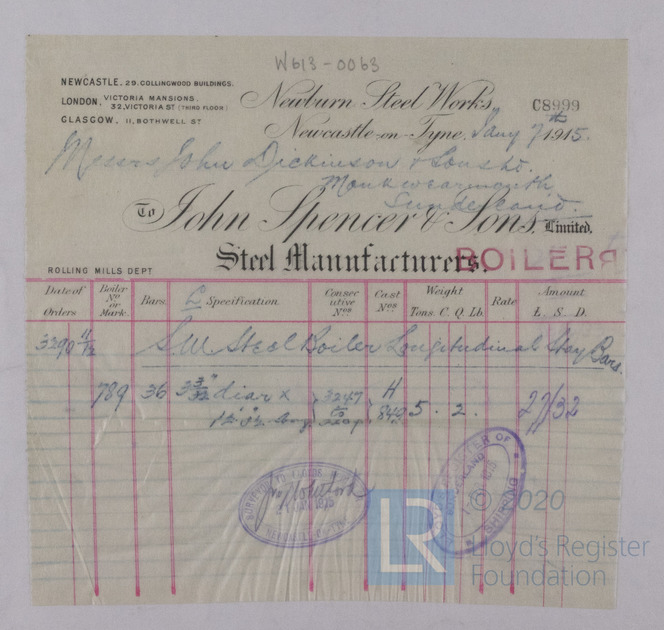 W613-0063
NEWCASTLE. 29. COLLINGWOOD BUILDINGS.
LONDON. VICTORIA MANSIONS.
32, VICTORIA ST (THIRD FLOOR)
GLASGOW. 11, BOTHWELL ST
Newburn Steel Works,
C8999
Newcastle-on-Tyne, Jany 7th 1915.
Messrs John Dickinson & Sons Ld.
Monkwearmouth
Sunderland.
To John Spencer & Sons, Limited.
Steel Manufacturers.
BOILERS
ROLLING MILLS DEPT
Date of Orders
Boiler No or Mark.
Bars.
Specification
Consecutive Nos
Cast Nos
Weight
Tons. C. Q. Lb.
Rate
Amount
L. S. D.
3290 11/12 S.M. Steel Boiler Longitudinal Stay Bars.
789 36 diar x 3247 H
to 849 5. 2. 27/32
1915
REGISTER OF SHIPPING
1915
© 2020
LR
Lloyd's Register
Foundation